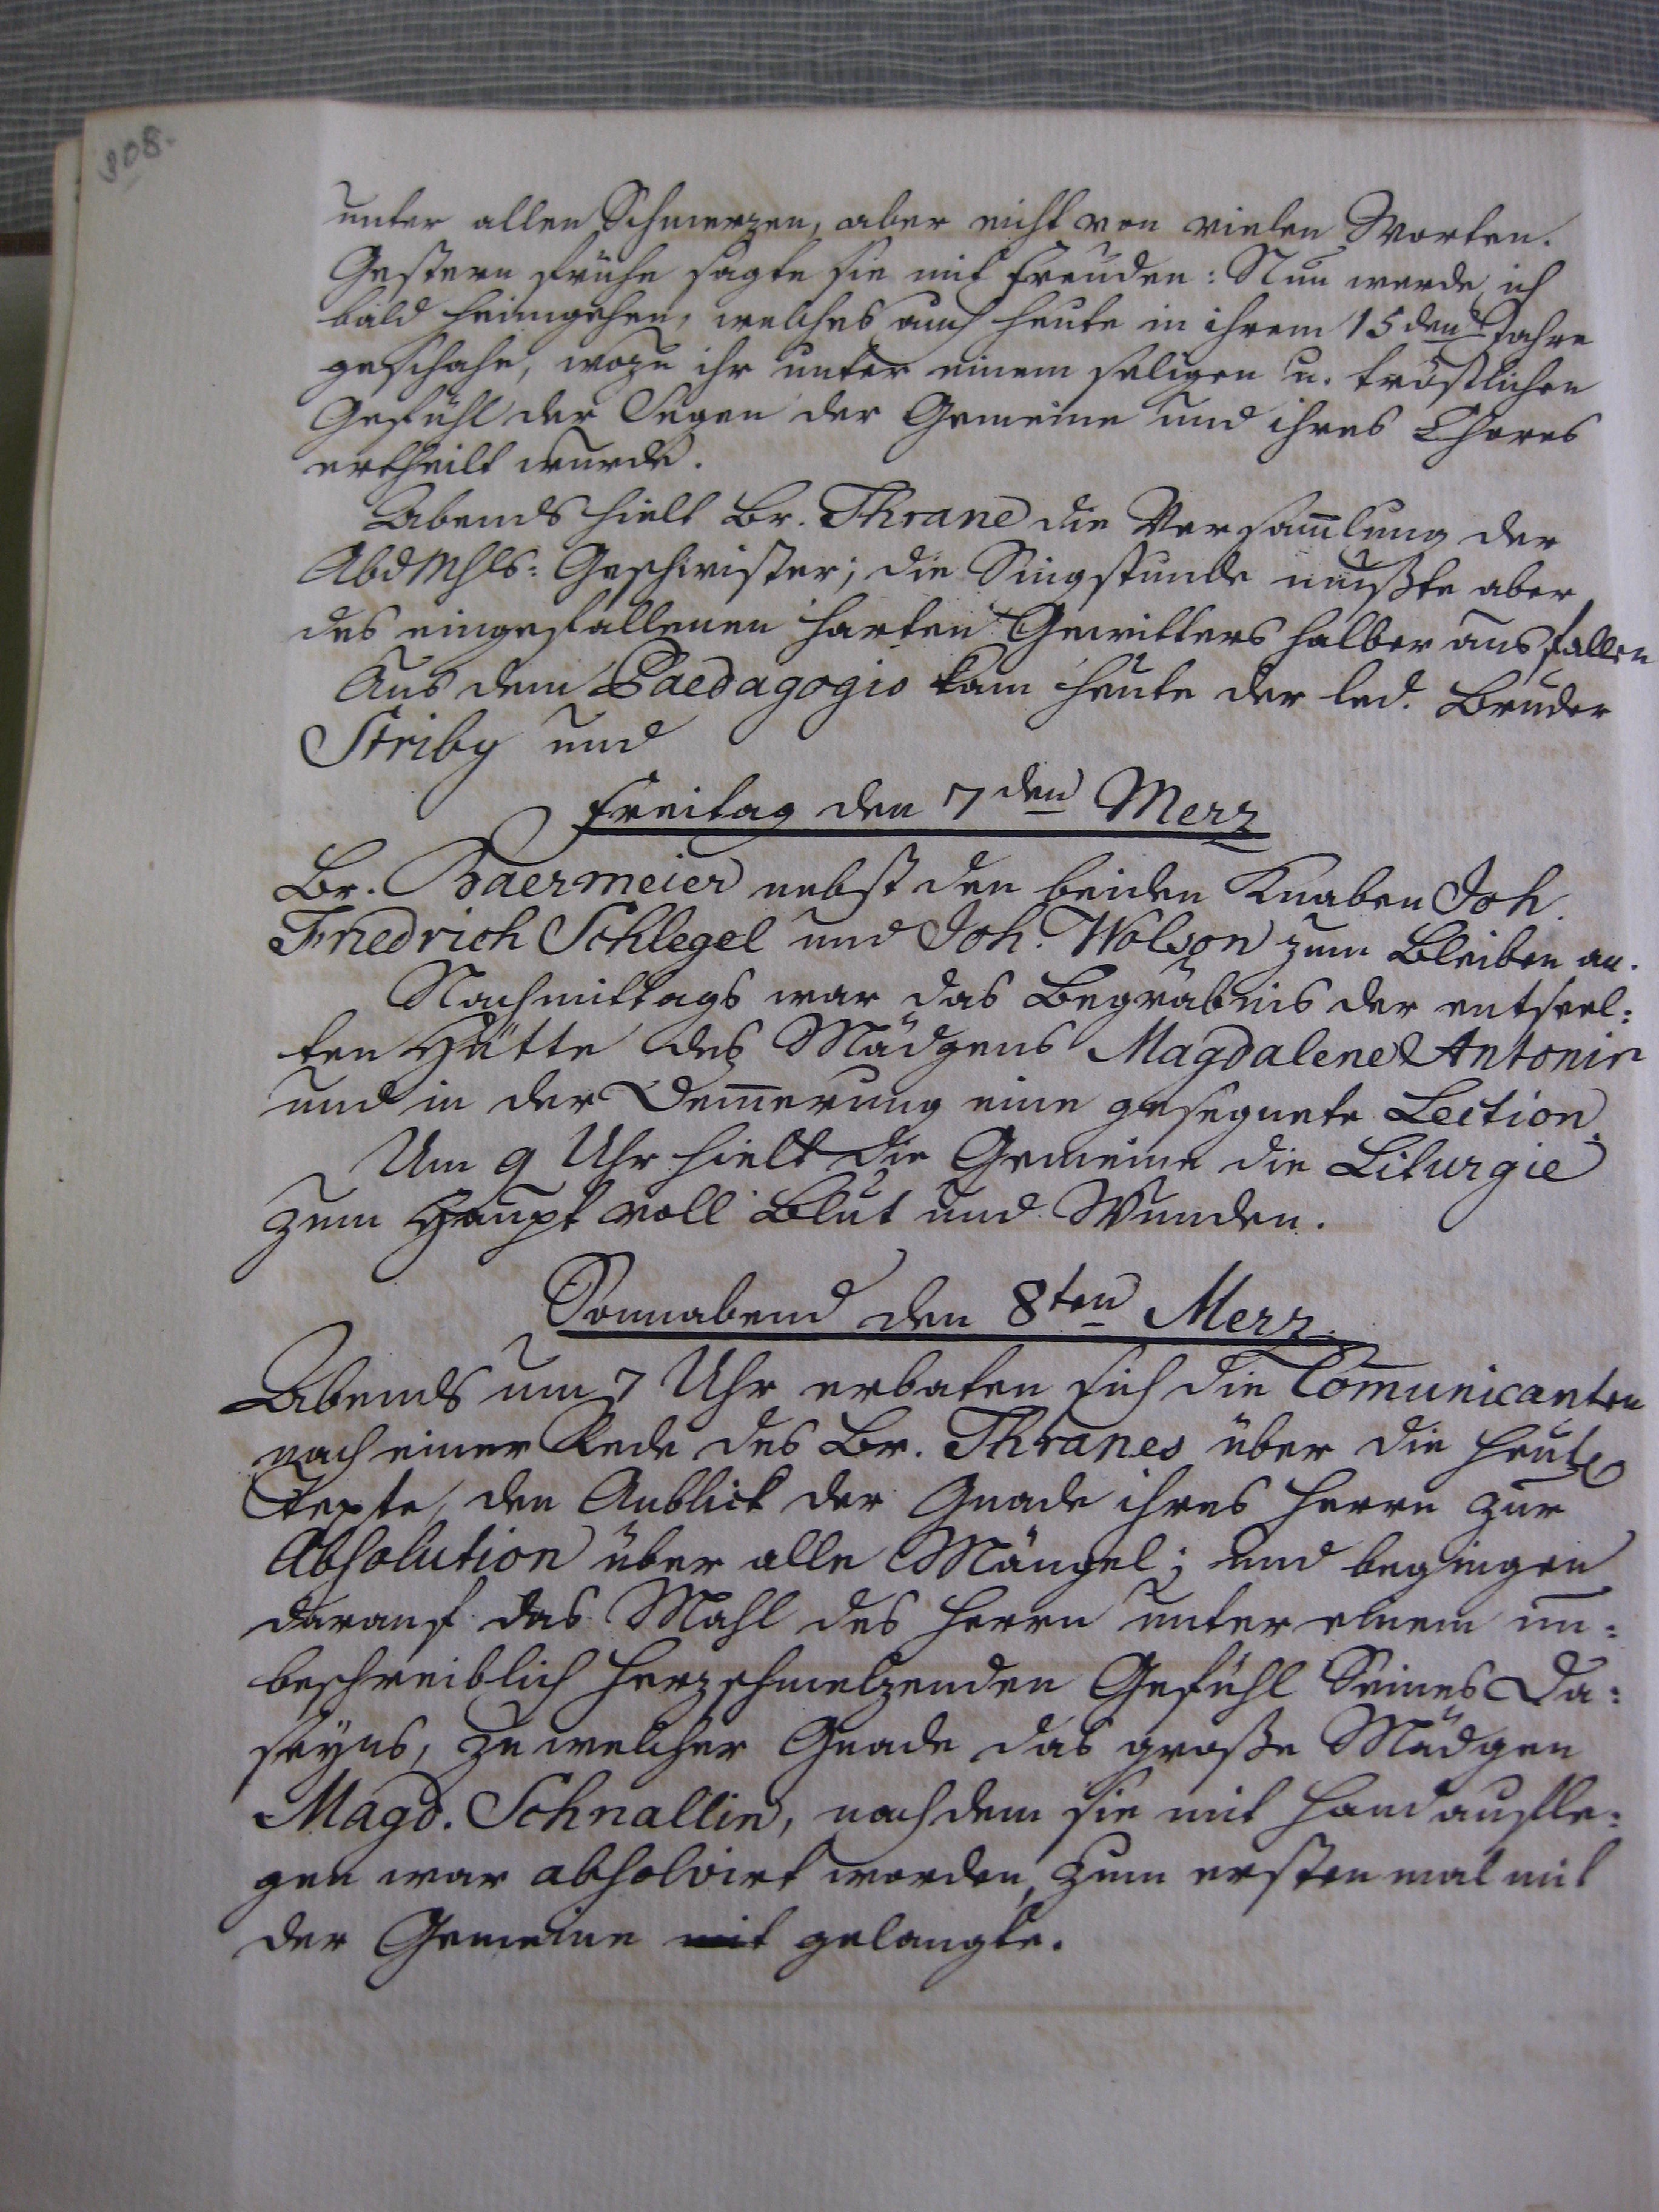 308.
unter allen Schmerzen, aber nicht von vielen Worten.
Gestern frühe sagte sie mit Freuden: Nun werde ich
bald heimgehen, welches auch heute in ihrem 15den Jahre
geschahe, wozu ihr unter einem seligen u. tröstlichen
Gefühl der Segen der Gemeine und ihres Chores
ertheilt wurde.
Abends hielt Br. Thrane die Versam̅lung der
AbdMhls: Geschwister; die Singstunde mußte aber
des eingefallenen harten Gewitters halber ausfallen
Aus dem Paedagogio kam heute der led. Bruder
Striby und
Freitag den 7den Merz
Br. Baermeier nebst den beiden Knaben Joh.
Friedrich Schlegel und Joh. Wolson zum Bleiben an.
Nachmittags war das Begräbnis der entseel:
ten Hütte des Mädgens Magdalene Antonin
und in der Dem̅erung eine gesegnete Lection.
Um 9 Uhr hielt die Gemeine die Liturgie
zum Haupt voll Blut und Wunden.
Sonnabend den 8ten Merz.
Abends um 7 Uhr erbaten sich die Com̅unicanten
nach einer Rede des Br. Thranes über die heut
Texte, den Anblick der Gnade ihres Herrn zur
Absolution über alle Mängel; und begingen
darauf das Mahl des Herrn unter einem un:
beschreiblich herzschmelzenden Gefühl Seines Da:
seyns, zu welcher Gnade das große Mädgen
Magd. Schnallin, nachdem sie mit Handaufle:
gen war absolvirt worden, zum ersten mal mit
der Gemeine mit gelangte.